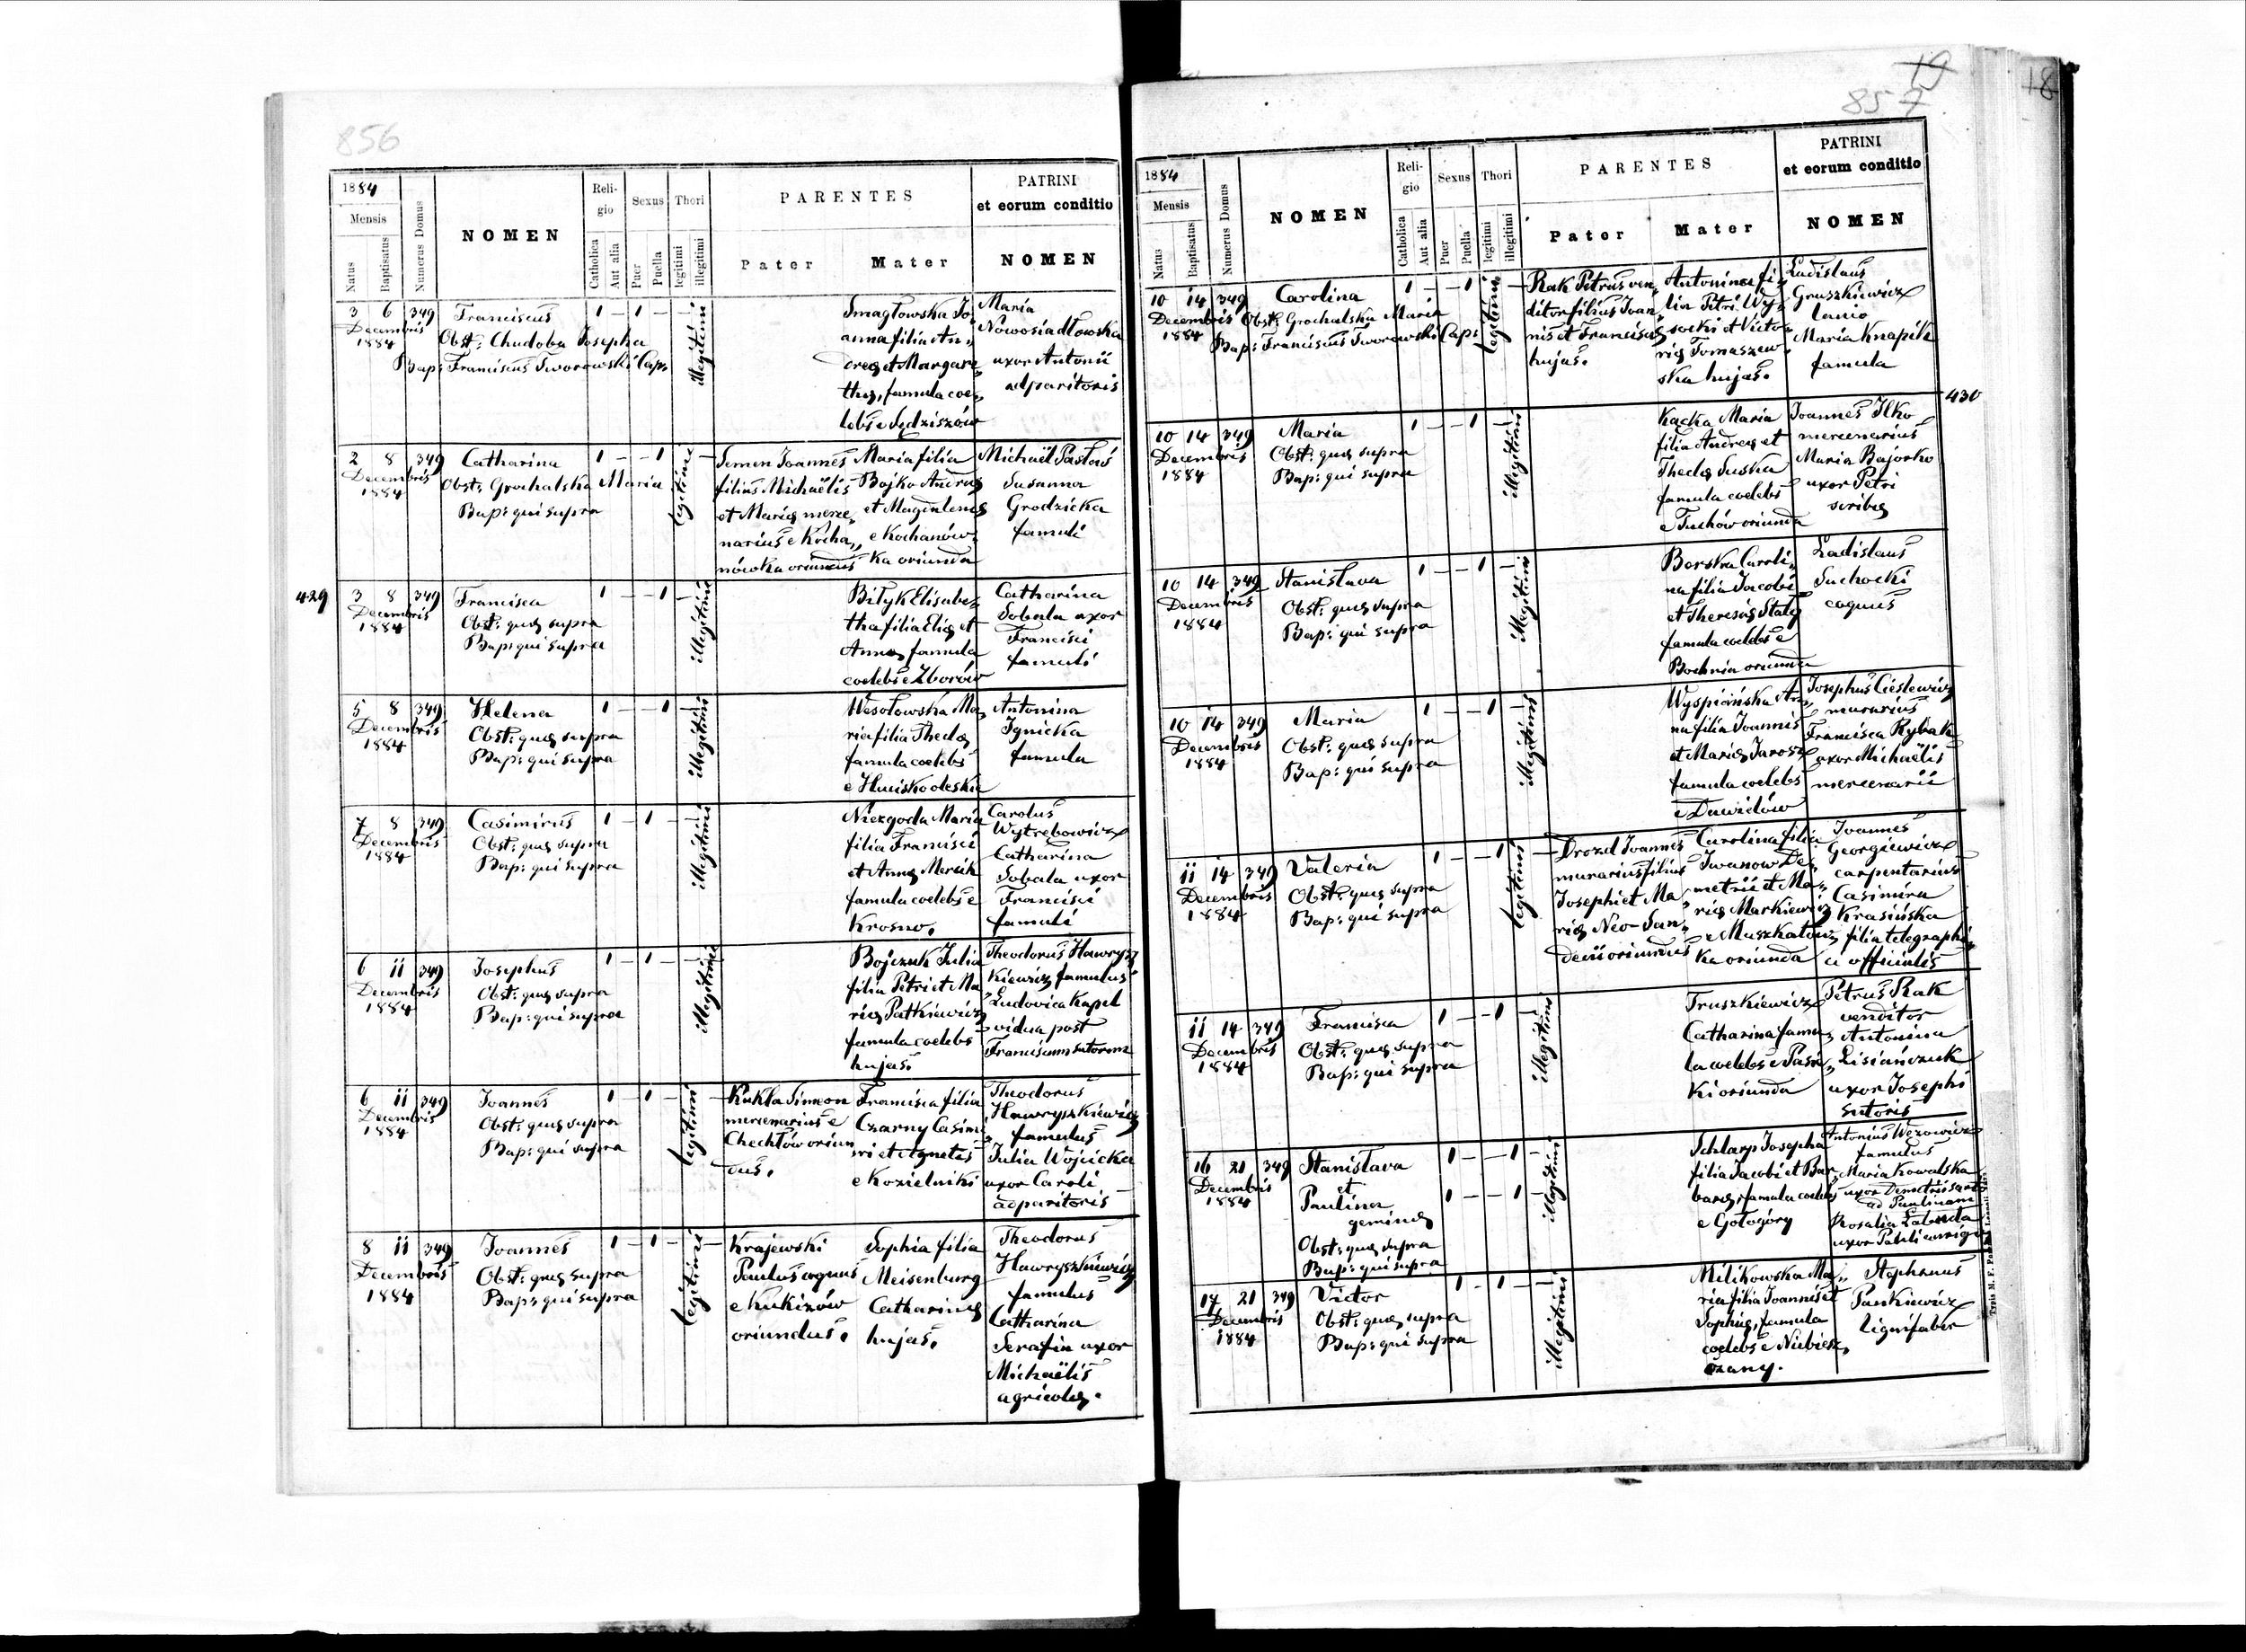 856
1884
Mensis
Natus
Baptisatus
Numerus Domus
NOMEN
Reli-
gio
Catholica
Aut alia
Sexus
Puer
Puella
Thori
legitimi
illegitimi
PARENTES
Pater
Mater
PATRINI
et eorum conditio
NOMEN
3 6 349
Decembris
1884
Franciscus
Obst: Chudoba Josepha
Bap: Franciscus Tworowski Cap:
1 — 1 — —
illegitimi
Smagłowska Jo„
anna filia An„
dreę et Margare„
thę, famula coe„
lebs e Sędziszów
Maria
Nowosiadłowska
uxor Antonii
adparitoris
2 8 349
Decembris
1884
Catharina
Obst: Grochalska Maria
Bap: qui supra
1 — — 1 —
legitimi
Semen Joannes
filius Michaëlis
et Marię merce„
narius e Kocha„
nówka oriundus
Maria filia
Bojko Andreę
et Magdalenę
e Kochanów„
ka oriunda
Michaël Pastuś
Susanna
Grodzicka
famuli
429
3 8 349
Decembris
1884
Francisca
Obst: quę supra
Bap: qui supra
1 — — 1 —
illegitimi
Biłyk Elisabe„
tha filia Elię et
Annę famula
coelebs e Zborów
Catharina
Sobala uxor
Francisci
famuli
5 8 349
Decembris
1884
Helena
Obst: quę supra
Bap: qui supra
1 — — 1 —
illegitimi
Wesołowska Ma„
ria filia Theclę
famula coelebs
e Hucisko oleskie
Antonina
Ignicka
famula
7 8 349
Decembris
1884
Casimirus
Obst: quę supra
Bap: qui supra
1 — 1 — —
illegitimi
Niezgoda Maria
filia Francisci
et Annę Mercik
famula coelebs e
Krosno.
Carolus
Wytrębowicz
Catharina
Sobala uxor
Francisci
famuli
6 11 349
Decembris
1884
Josephus
Obst: quę supra
Bap: qui supra
1 — 1 — —
illegitimi
Bojczuk Julia
filia Petri et Ma„
rię Patkiewicz
famula coelebs
hujas.
Theodorus Hawrysz„
kiewicz famulus
Ludovica Kapel
vidua post
Franciscum sutorem
6 11 349
Decembris
1884
Joannes
Obst: quę supra
Bap: qui supra
1 — 1 — —
legitimi
Kukla Simeon
mercenarius e
Chechłów oriun
dus.
Francisca filia
Czarny Casimi„
ri et Agnetis
e Kozielniki
Theodorus
Hawryszkiewicz
famulus
Julia Wojcicka
uxor Caroli
adparitoris
8 11 349
Decembris
1884
Joannes
Obst: quę supra
Bap: qui supra
1 — 1 — —
legitimi
Krajewski
Paulus coquus
e Kukizów
oriundus.
Sophia filia
Meisenburg
Catharinę
hujas.
Theodorus
Hawryszkiewicz
famulus
Catharina
Serafin uxor
Michaëlis
agricolę.
19
857
18
1884
Mensis
Natus
Baptisatus
Numerus Domus
NOMEN
Reli-
gio
Catholica
Aut alia
Sexus
Puer
Puella
Thori
legitimi
illegitimi
PARENTES
Pater
Mater
PATRINI
et eorum conditio
NOMEN
10 14 349
Decembris
1884
Carolina
Obst: Grochalska Maria
Bap: Franciscus Tworowski Cap:
1 — — 1 —
legitimi
Rak Petrus ven„
ditor filius Joan„
nis et Franciscę
hujas.
Antonina fi„
lia Petri Wy„
socki et Victo„
rię Tomaszew„
ska hujas.
Ladislaus
Gruszkiewicz
lanio
Maria Knapik
famula
430
10 14 349
Decembris
1884
Maria
Obst: quę supra
Bap: qui supra
1 — — 1 —
illegitimi
Kącka Maria
filia Andreę et
Theclę Suska
famula coelebs
e Tuchów oriunda
Joannes Ilko
mercenarius
Maria Bajorko
uxor Petri
scribę
10 14 349
Decembris
1884
Stanislava
Obst: quę supra
Bap: qui supra
1 — — 1 —
illegitimi
Borska Caroli„
na filia Jacobi
et Theresię Stały
famula coelebs e
Bochnia oriunda
Ladislaus
Suchocki
coquus
10 14 349
Decembris
1884
Maria
Obst: quę supra
Bap: qui supra
1 — — 1 —
illegitimi
Wyspiańska An„
na filia Joannis
et Marię Jarosz
famula coelebs
e Dawidów
Josephus Cieslewicz
murarius
Francisca Rybak
uxor Michaëlis
mercenarii
11 14 349
Decembris
1884
Valeria
Obst: quę supra
Bap: qui supra
1 — — 1 —
legitimi
Drozd Joannes
murarius filius
Josephi et Ma„
rię Neo-San„
decii oriundus
Carolina filia
Iwanow De„
metrii et Ma„
rię Markiewicz
e Muszkatów„
ka oriunda
Joannes
Georgiewicz
carpentarius
Casimira
Krasińska
filia telegraphi„
ci officialis
11 14 349
Decembris
1884
Francisca
Obst: quę supra
Bap: qui supra
1 — — 1 —
illegitimi
Truszkiewicz
Catharina famu„
la coelebs e Pasie„
ki oriunda
Petrus Rak
venditor
Antonina
Lisiańczuk
uxor Josephi
sutoris
16 21 349
Decembris
1884
Stanislava
et
Paulina
geminę
Obst: quę supra
Bap: qui supra
1 — — 1 —
1 — — 1 —
illegitimi
Schlarp Josepha
filia Jacobi et Bar„
barę, famula coelebs
e Gołogóry
Antonius Wezowicz
famulus
Maria Kowalska
uxor Demetrii
ad Paulinam
Rosalia Labenda
uxor Pauli aurigę
17 21 349
Decembris
1884
Victor
Obst: quę supra
Bap: qui supra
1 — 1 — —
illegitimi
Milikowska Ma„
ria filia Joannis et
Sophię, famula
coelebs e Niebiesz„
czany.
Stephanus
Pankiewicz
lignifaber